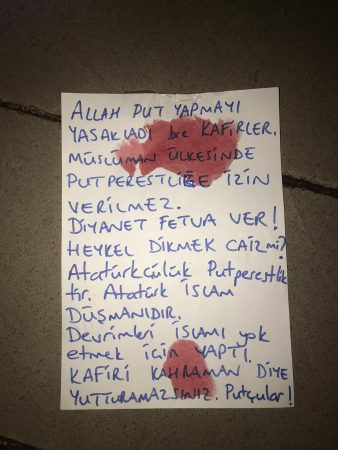 ALLAH PUT YAPMAYI
YASAKLADI bre KAFİRLER.
MÜSLÜMAN ÜLKESİNDE
PUTPERESTLİĞE İZİN
VERİLMEZ.
DİYANET FETVA VER!
HEYKEL DİKMEK CAİZMİ?
Atatürkçülük Putperestlik
tir. Atatürk İSLAM
DÜŞMANIDIR.
Devrimleri İSLAMI yok
etmek için YAPTI.
KAFİRİ KAHRAMAN DİYE
YUTTURAMAZSINIZ. Putçular!